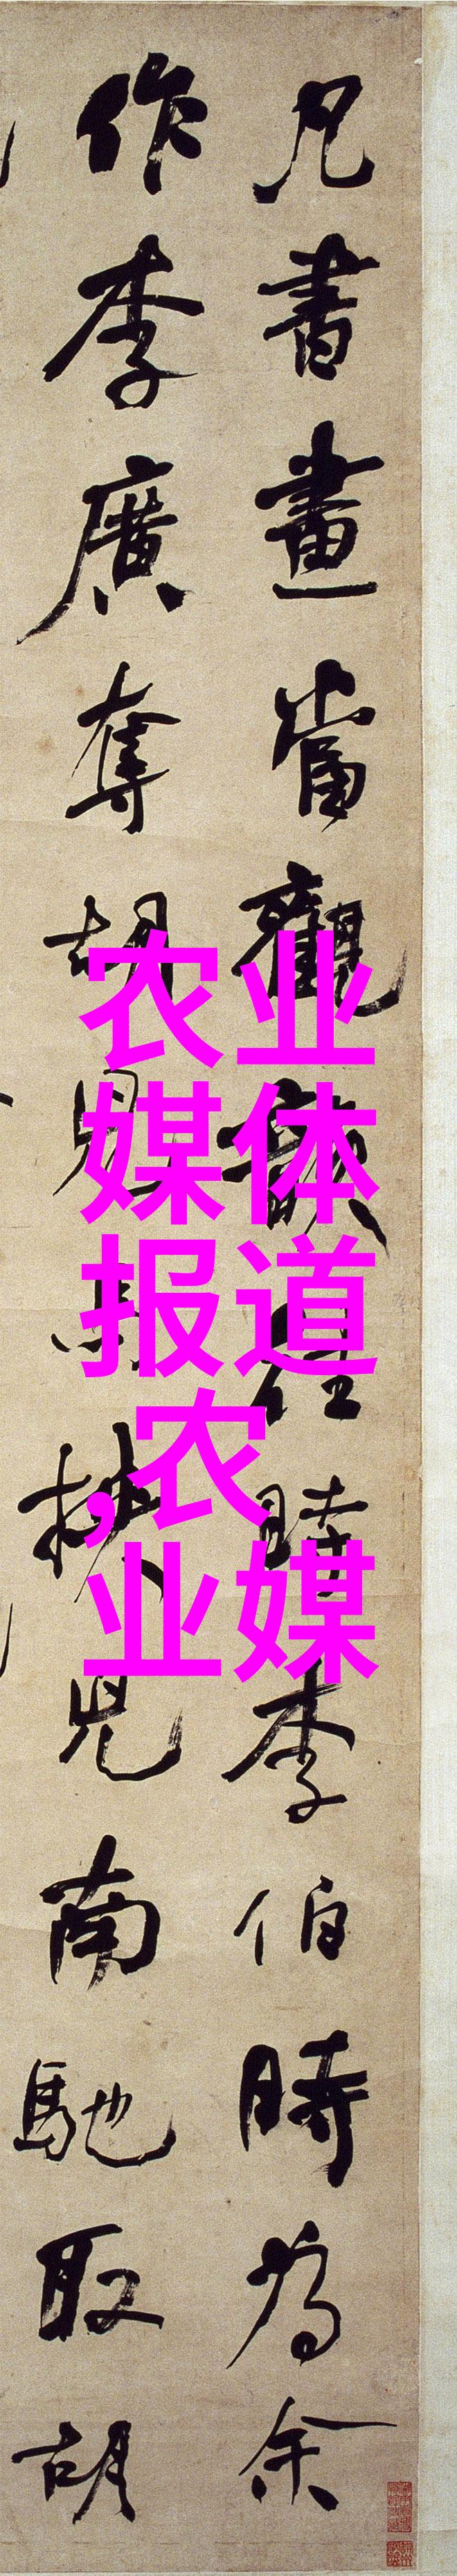 凡書畫當觀韻往時李伯時為余
作李廣奪胡兒馬挾兒南馳取胡
农业
媒体
报道
,农
业媒